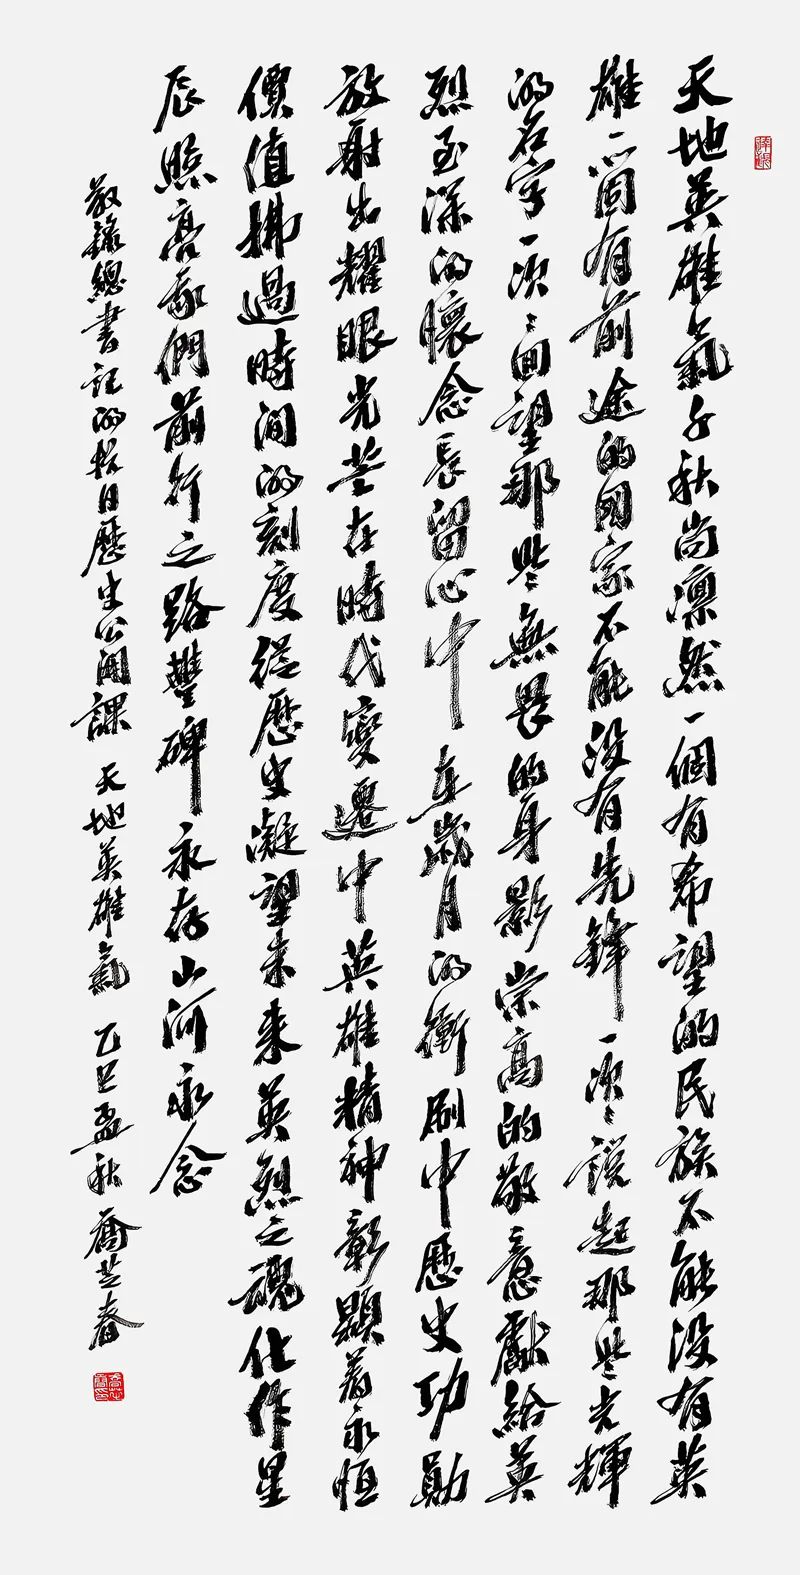 天地英雄氣千秋尚凛然一個有希望的民族不能没有英
雄一個有前途的國家不能没有先鋒一次次説起那些光輝
的名字一次次回望那些無畏的身影崇高的敬意獻給英
烈至深的懷念長留心中在歲月的衝刷中歷史功勛
放射出耀眼光芒在時代變遷中英雄精神彰顯着永恒
價值拂過時間的刻度從歷史凝望未來英烈之魂化作星
辰照亮我們前行之路豐碑永存山河永念
敬錄總書記的抗日歷史公開課 天地英雄氣 乙巳孟秋 喬芝春